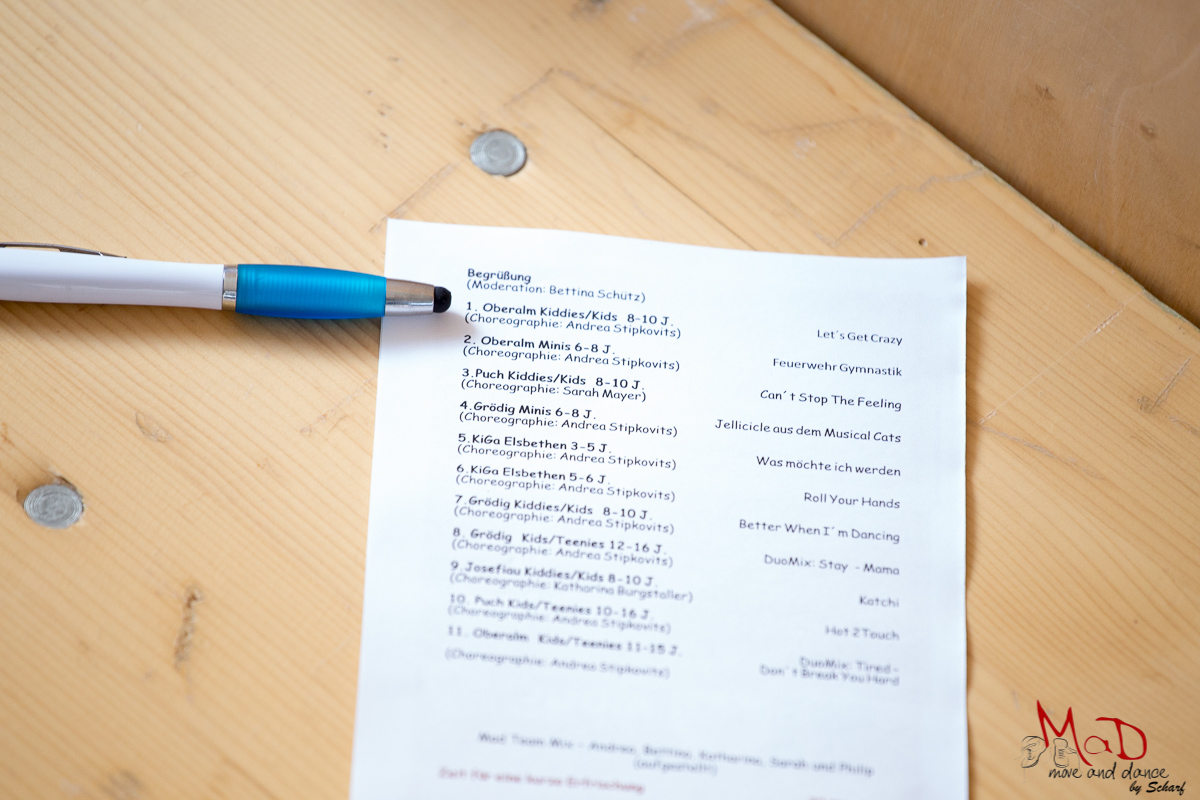 Begrüßung
(Moderation: Bettina Schütz)
1. Oberalm Kiddies/Kids 8-10 J.
(Choreographie: Andrea Stipkovits)
Let´s Get Crazy
2. Oberalm Minis 6-8 J.
(Choreographie: Andrea Stipkovits)
Feuerwehr Gymnastik
3.Puch Kiddies/Kids 8-10 J.
(Choreographie: Sarah Mayer)
Can´t Stop The Feeling
4.Grödig Minis 6-8 J.
(Choreographie: Andrea Stipkovits)
Jellicicle aus dem Musical Cats
5.KiGa Elsbethen 3-5 J.
(Choreographie: Andrea Stipkovits)
Was möchte ich werden
6.KiGa Elsbethen 5-6 J.
(Choreographie: Andrea Stipkovits)
Roll Your Hands
7.Grödig Kiddies/Kids 8-10 J.
(Choreographie: Andrea Stipkovits)
Better When I´m Dancing
8. Grödig Kids/Teenies 12-16 J.
(Choreographie: Andrea Stipkovits)
DuoMix: Stay - Mama
9.Josefiau Kiddies/Kids 8-10 J.
(Choreographie: Katharina Burgstaller)
Katchi
10. Puch Kids/Teenies 10-16 J.
(Choreographie: Andrea Stipkovits)
Hot 2 Touch
11. Oberalm Kids/Teenies 11-15 J.
(Choreographie: Andrea Stipkovits)
DuoMix: Tired -
Don´t Break You Hard
Mad Team Mix - Andrea, Bettina, Katharina, Sarah und Philip
(aufgestellt)
Zeit für eine kurze Erfrischung
MaD
move and dance
by Scharf